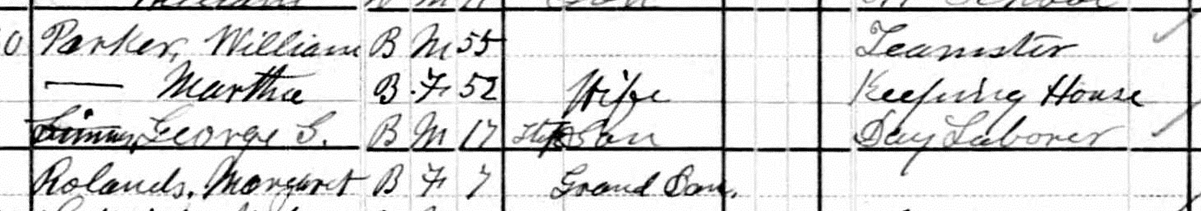 0 Parker, William B M 55 Teamster
— Martha B F 52 Wife Keeping House
George S. B M 17 Step Son Day Laborer
Rolands, Margaret B F 7 Grand Dau.